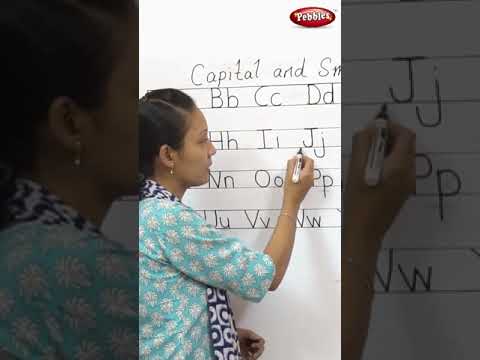 Pebbles
Capital and Sm
Bb Cc Dd
Hh Ii Jj
Nn Oo Pp
Uu Vv Ww